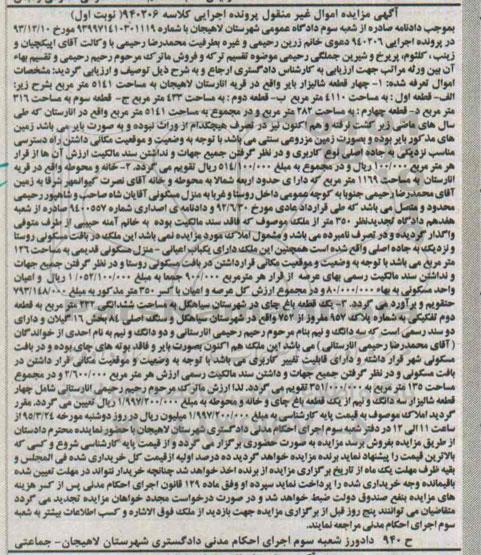 آگهی مزایده اموال غیر منقول پرونده اجرایی کلاسه ۹۴۰۲۰۶ (نوبت اول)
بموجب دادنامه صادره از شعبه سوم دادگاه عمومی شهرستان لاهیجان با شماره ۹۳۹۹۷۱۴۱۰۳۰۱۱۱۹ مورخ ۹۳/۱۲/۱۰
در پرونده اجرایی ۹۴۰۲۰۶ دعوی خانم زرین رحیمی و غیره بطرفیت محمدرضا رحیمی با وکالت آقای اپیکچیان و
زینب، کلثوم، پریرخ و شیرین جملگی رحیمی موضوع تقسیم ترکه و فروش ماترک مرحوم رحیم رحیمی و تقسیم بهاء
آن بین ورثه مراتب جهت ارزیابی به کارشناس دادگستری ارجاع و به شرح ذیل توصیف و ارزیابی گردید: مشخصات
اموال تعرفه شده: ۱- چهار قطعه شالیزار بایر واقع در قریه انارستان لاهیجان به مساحت ۵۱۴۱ متر مربع بشرح زیر:
الف- قطعه اول: به مساحت ۴۱۱۰ متر مربع ب- قطعه دوم: به مساحت ۴۳۳ متر مربع ج- قطعه سوم به مساحت ۳۱۶
متر مربع د- قطعه چهارم: به مساحت ۲۸۲ متر مربع و در مجموع به مساحت ۵۱۴۱ متر مربع واقع در انارستان که طی
سال های ماضی زیر کشت نرفته و هم اکنون نیز در تصرف هیچکدام از وراث نبوده و به صورت بایر می باشد زمین
های مذکور بایر بوده و بصورت زمین مزروعی سنتی می باشد با توجه به وضعیت و موقعیت مکانی داشتن راه دسترسی
مناسب نزدیکی به جاده اصلی نوع کاربری و در نظر گرفتن جمیع جهات و نداشتن سند مالکیت ارزش آن ها از قرار
هر متر مربع ۱۰۰/۰۰۰ ریال و در مجموع به مبلغ ۵۱۴/۱۰۰/۰۰۰ ریال تقویم می گردد. ۲- خانه و محوطه واقع در قریه
انارستان به مساحت ۱۱۶۹ متر مربع که دارای حدود اربعه شمالا به محوطه و خانه آقای نصرت کیوانمهر شرقا به زمین
آقای محمدرضا رحیمی جنوبا به کوچه عمومی داخل روستا و غربا به منزل مسکونی آقایان شاه رجب و شاهپور رحیمی
محدود و متصل می باشد که طی قرارداد عادی مورخ ۹۲/۶/۳۰ و دادنامه ی اصداری شماره ۹۴۰۰۵۵۷ صادره از شعبه
هفدهم دادگاه تجدیدنظر ۳۵۰ متر از ملک وصفی که فاقد سند مالکیت بوده به خانم آمنه حبیبی از طرف متوفی
واگذار گردیده و در تصرف نامبرده می باشد و مشمول املاک مورد مزایده نمی باشد این ملک در بافت مسکونی روستا
و نزدیک به جاده اصلی واقع شده است همچنین این ملک دارای یکباب اعیانی - منزل مسکونی قدیمی به مساحت ۱۳۶
متر مربع می باشد با توجه به وضعیت و موقعیت مکانی قرار داشتن در بافت مسکونی روستا و در نظر گرفتن جمیع جهات
و نداشتن سند مالکیت رسمی بهای عرصه از قرار هر مترمربع ۹۰۰/۰۰۰ جمعا به مبلغ ۱/۰۵۲/۱۰۰/۰۰۰ ریال و اعیان
واحد مسکونی به بهاء ۸۰/۰۰۰/۰۰۰ و در مجموع ارزش کل عرصه و اعیان با کسر ۳۵۰ متر مذکور به مبلغ ۷۹۳/۱۴۸/۰۰۰
حتقویم و برآورد می گردد. ۳- یک قطعه باغ چای در شهرستان سیاهکل به مساحت ششدانگی ۲۳۲ متر مربع به قطعه
دوم تفکیکی به شماره پلاک ۹۵۷ مفروز از ۷۵۲ واقع در شهرستان سیاهکل و سنگ اصلی بخش ۱۶ گیلان و دارای
دو سند رسمی است که سه دانگ و نیم بنام مرحوم رحیم رحیمی انارستانی و دو دانگ و نیم به نام احدی از خواندگان
(آقای محمدرضا رحیمی انارستانی) می باشد این ملک هم اکنون بصورت بایر و فاقد بوته های چای بوده و در بافت
مسکونی شهر قرار داشته و دارای قابلیت تغییر کاربری می باشد با توجه به وضعیت و موقعیت مکانی قرار داشتن در
بافت مسکونی و در نظر گرفتن جمیع جهات و داشتن سند مالکیت رسمی ارزش هر متر مربع ۲/۶۰۰/۰۰۰ و در مجموع
مساحت ۱۳۵ متر مربع به ۳۵۱/۰۰۰/۰۰۰ تقویم می گردد. لذا ارزش ماترک مرحوم رحیم رحیمی انارستانی شامل چهار
قطعه شالیزار سه دانگ و نیم از یک قطعه باغ چای و خانه و محوطه به مبلغ ۱/۹۹۷/۲۰۰/۰۰۰ ریال تعیین می گردد. مقرر
گردید املاک موصوف به قیمت پایه کارشناسی به مبلغ ۱/۹۹۷/۲۰۰/۰۰۰ میلیون ریال در روز دوشنبه مورخه ۹۵/۳/۲۴ از
ساعت ۱۱ الی ۱۲ در دفتر شعبه سوم اجرای احکام مدنی دادگستری شهرستان لاهیجان با حضور نماینده محترم دادستان
از طریق مزایده بفروش برسد مزایده به صورت حضوری برگزار می گردد و از قیمت پایه کارشناسی شروع و کسی که
بالاترین قیمت را پیشنهاد نماید برنده مزایده خواهد گردید ده درصد اولیه از قیمت کل خریداری شده فی المجلس و
بقیه ظرف مهلت یک ماه از تاریخ برگزاری مزایده از برنده اخذ خواهد شد چنانچه خریدار نتواند در مهلت تعیین شده
باقیمانده وجه خریداری شده را پرداخت نماید سپرده او وفق ماده ۱۲۹ قانون اجرای احکام مدنی پس از کسر هزینه
های مزایده بنفع صندوق دولت ضبط خواهد شد و در صورت درخواست مجدد خواهان مزایده تجدید می گردد
متقاضیان می توانند پنج روز قبل از برگزاری مزایده جهت بازدید از ملک فوق الاشاره و کسب اطلاعات بیشتر به شعبه
سوم اجرای احکام مدنی مراجعه نمایند.
ح ۹۴۰ دادورز شعبه سوم اجرای احکام مدنی دادگستری شهرستان لاهیجان- جماعتی